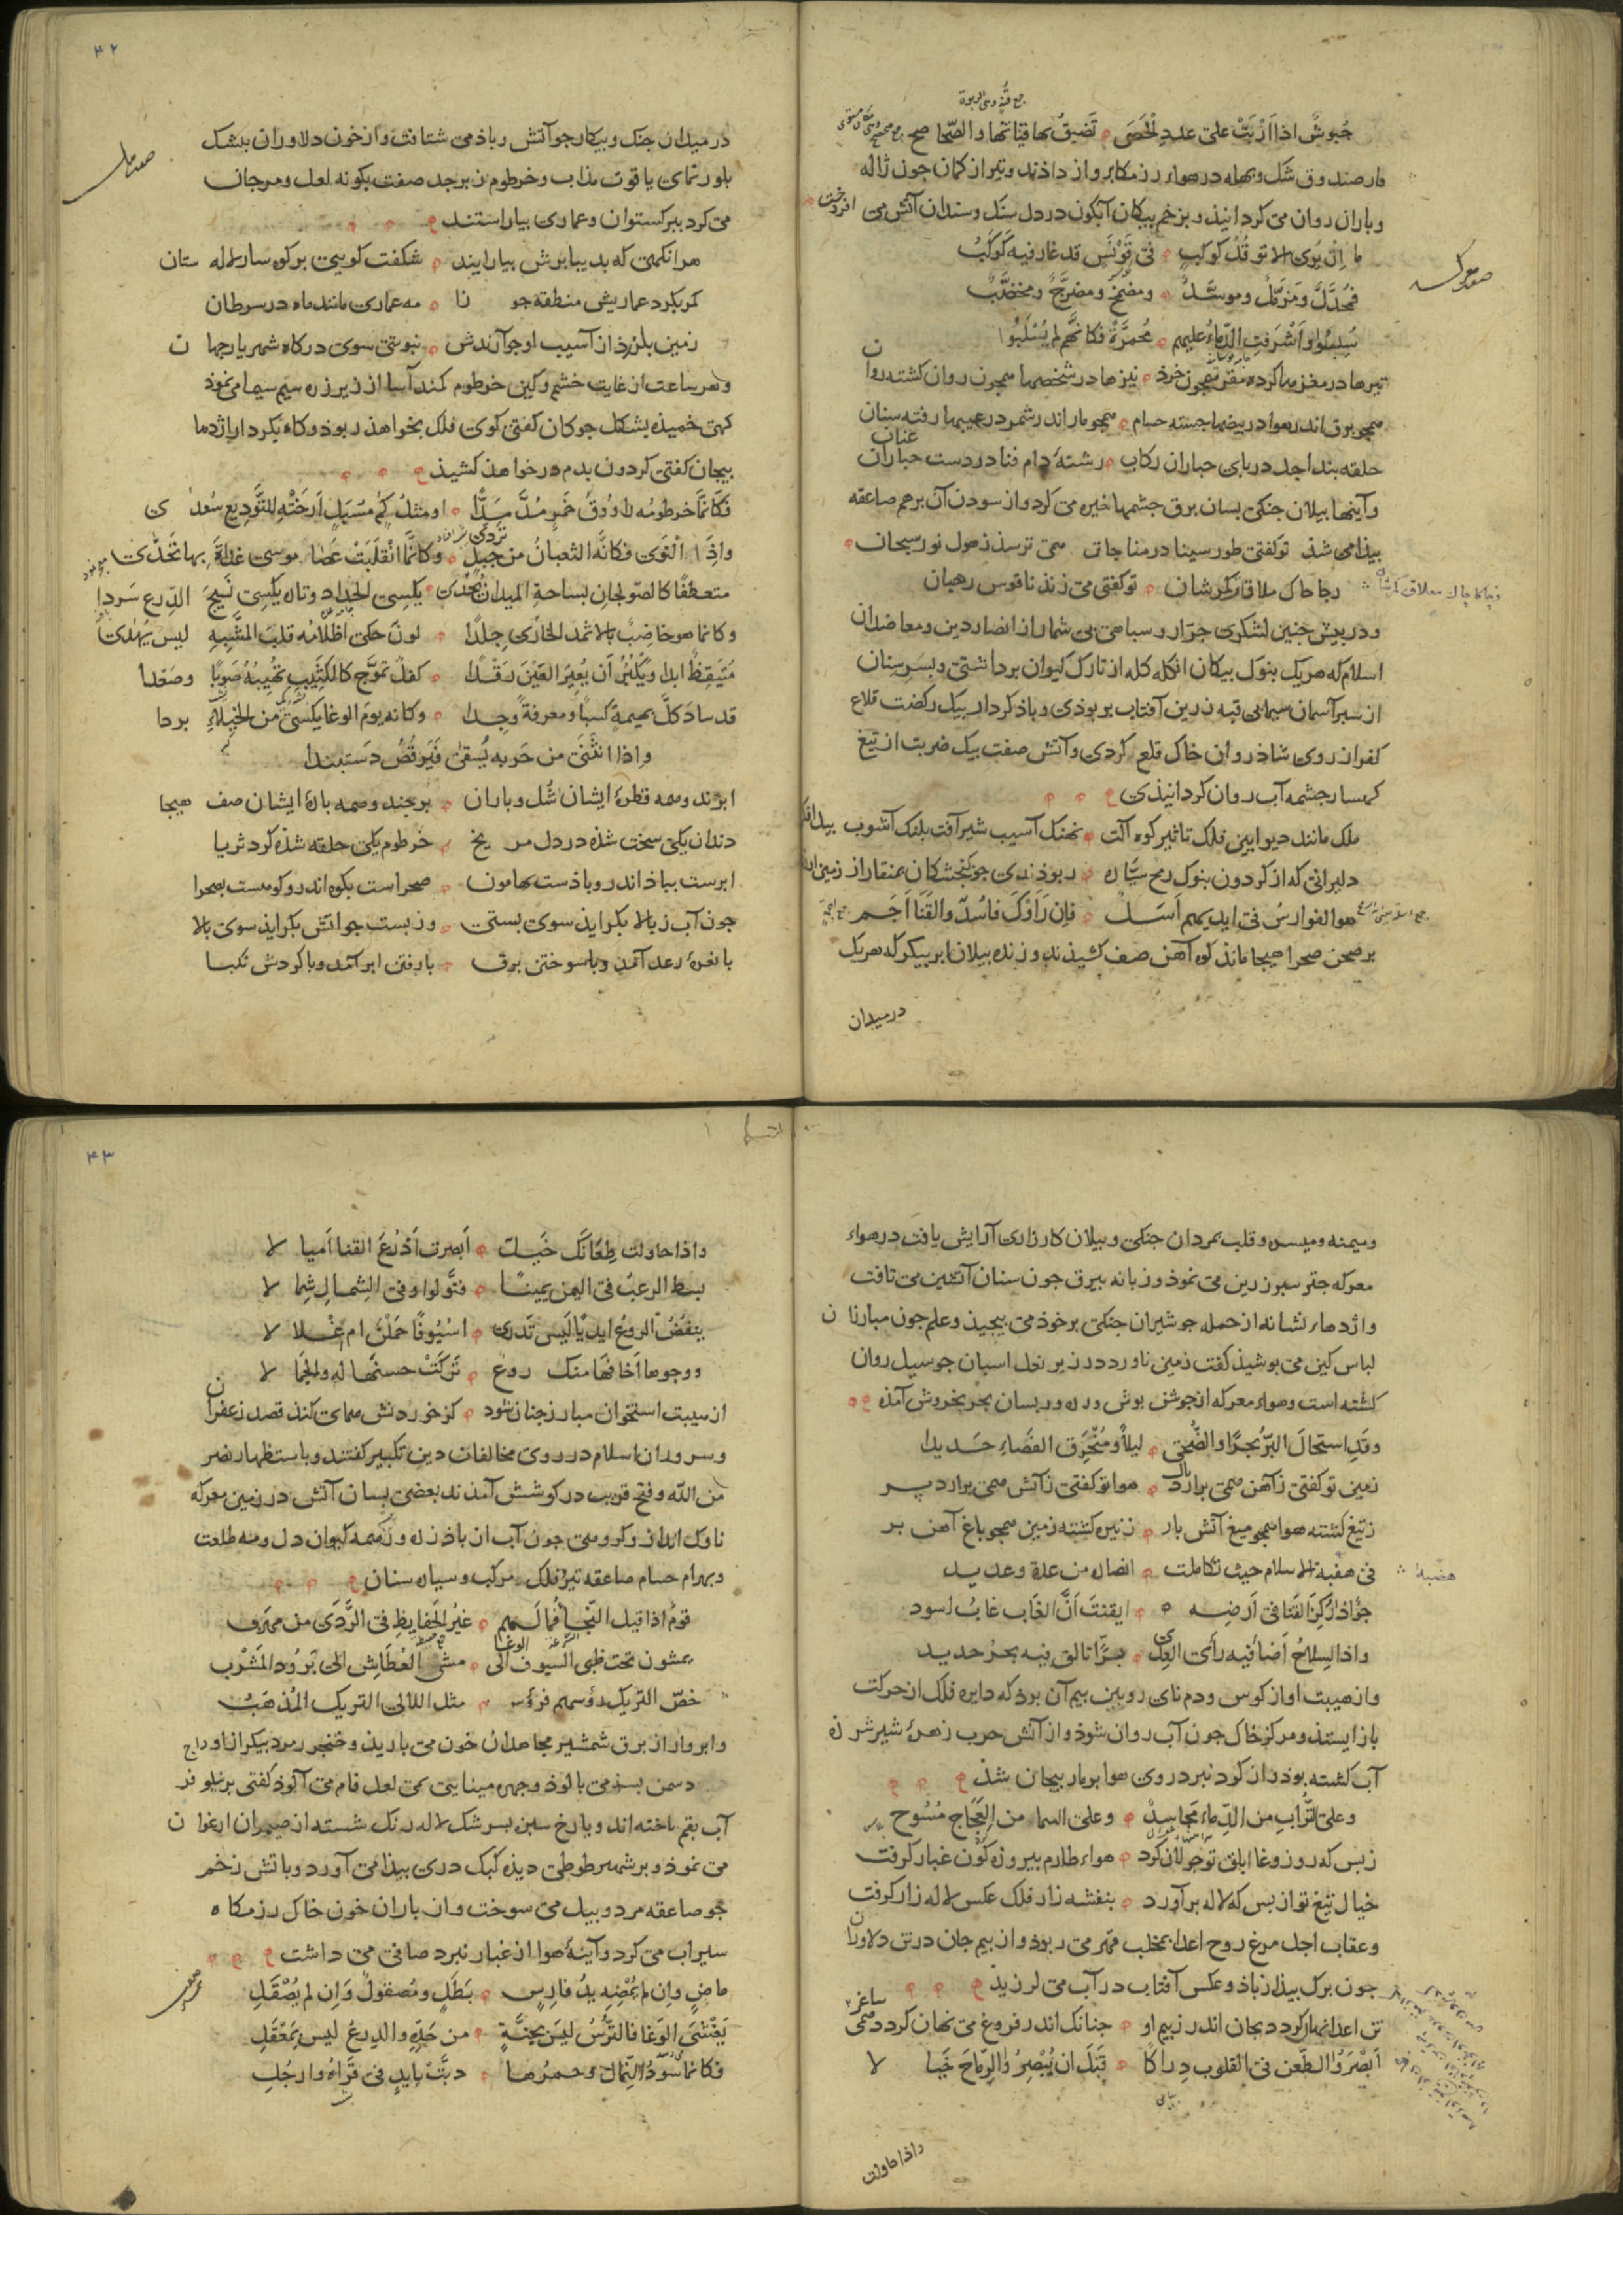 جُیوشٌ اذا اَرْبَتْ علی عددِ الْحَصَی تَضیقُ بها قیاتها والصَّحا صح
مارصند وق شکل و بهله در هواء رزمکا پرواز داذند و تیر از کمان جون ژاله
و باران روان می کردانیذ و بزخم بیکان آبکون در دل سنک و سندان آتش می افروخت
ما اِن یُری الا توقُّدُ کوکبٍ فی قَوْنَسٍ قد غار فیه کَوکَبُ
فمُجَدَّلٌ ومُزمَّلٌ وموسَّدٌ ومضمَّخٌ ومضرَّجٌ ومخضَّبٌ
سُلِبُوا واَشْرَقتِ الدّماءُ علیهم مُحمَرَّةً فکانّهم لم یُسْلَبُوا
تیرها در مغزها کرده مقر همجون خرذ نیزها در شخصها همجون روان کشته روان
همجو برق اندر هوا در بیضها جسته حسام همجو مار اندر شمر در عیبها رفته سنان
حلقه بند اجل در بای جباران رکاب رشتهٔ دام فنا در دست جباران عنان
و آینها بیلان جنکی بسان برق جشمها خیره می کرد و از سودن آن برهم صاعقه
بیذا می شذ توکفتی طور سینا در مناجات همی ترسذ ز هول نور سبحان
توکفتی می زنذ ناقوس رهبان
و در بیش جنین لشکری جرّار و سباهی بی شمار از انصار دین و معاضدان
اسلام که هریک بنوک بیکان انکله کله از تارک کیوان برداشتی و بسر سنان
از سبر آسمان سیمابی قبه زرین آفتاب بربوذی و باذ کردار بیک رکضت قلاع
کفر از روی شاذروان خاک قلع کردی و آتش صفت بیک ضربت از تیغ
کهسار جشمه آب روان کردانیذی
ملک مانند دیوآیین فلک تاثیر کوه آلت نهنک آسیب شیر آفت بلنک آشوب
دلیرانی که از کردون بنوک رمح سیّاره ربوذندی جو کنجشکان بمنقار از زمین
هو الفوارسُ فی ایدیهم اَسَلٌ فاِن رَاَوْکَ فاُسدٌ والقَنَا اَجَم
بر صحن صحرا هیجا مانند کوه آهن صف کشیذند و زنده بیلان ابر بیکر که هریک
در میدان
۴۲
در میدان جنک و بیکار جو آتش و باذ می شتافت و از خون دلاوران بشک
بلور نمای یاقوت مذاب و خرطوم زبرجد صفت بکونه لعل و مرجان
می کرد ببرکستوان و عماری بیاراستند
هرانکهی که بدیبا برش بیارایند شکفت کوییی بر کوه سار لاله ستان
کمر بکرد عماریش منطقه جوزا مه عماری مانند ماه در سرطان
زمین بلرزذ از آسیب او جو آرندش بنوبتی سوی درکاه شهریار جهان
و هر ساعت از غایت خشم و کین خرطوم کمند آسا از زیر زره سیم سیما می نموذ
کهی خمیذه بشکل جوکان کفتی کوی فلک بخواهذ ربوذ و کاه بکردار اژدها
بیجان کفتی کردون بدم در خواهذ کشیذ
فکانَّما خرطومُه راوُوقُ خَمرٍ مُدَّ مَدّا او مثلُ کُمٍّ مُسْبَلٍ اَرخَتْهِ للتَّودِیعِ سُعْدی
واِذَا الْتَوَی فکانّه الثعبانُ من جبلٍ تَرَدَّی وکانّما انْقَلَبَتْ عَصَا موسی غداةَ بها تَحَدَّی
متعطّفًا کالصّولجان بساحةِ المیدانِ یُحدی یکسِی الحِداد وتارةً یکسِی نَسِیجَ الدِّرع سَردا
وکانما هو خاضبٌ بالاثمد الحاریِ جِلدًا لونٌ حکی اظلامُه قلبَ المشبِّهِ لیس یُهدَی
مُتَیَقِظٌ ابدا ویَکْبُرُ اَن یُعِیرَ العَیْنَ رَقْدا کفلٌ تموَّج کالکَثیِبِ تهُیِبُهُ صَوبًا وصَعْدا
قد سادَ کلَّ بهیمةٍ کَسبًا ومعرفةً وجِدا وکانه یومَ الوغا یُکسَیْ من الخیلاءِ بردا
واذا انثَنَی من حَربه یُسقی فَیَرقُصُ دَستبندا
ابرند و همه قطرهٔ ایشان شل و باران برجند و همه بارهٔ ایشان صف هیجا
دندان یکی سخت شذه در دل مریخ خرطوم یکی حلقه شذه کرد ثریا
ابرست بباذ اندر و باذست بهامون صحراست بکوه اندر و کوهست بصحرا
جون آب ز بالا بکرایذ سوی بستی وز بست جو آتش بکرایذ سوی بالا
با نعرهٔ رعد آمذ و با سوختن برق با رفتن ابر آمذ و با کردش نکبا
و میمنه و میسره و قلب بمردان جنکی و بیلان کارزاری آرایش یافت در هواء
معرکه جتر سبز زرین می نموذ و زبانه بیرق جون سنان آتشین می تافت
و اژدهاء نشانه از حمله جو شیران جنکی بر خوذ می بیجیذ و علم جون مبارزان
لباس کین می بوشیذ کفت زمین ناورد در زیر نعل اسبان جو سیل روان
کشته است و هواء معرکه از جوشن بوش و دروربسان بحر بخروش آمذه
وقَدِ استحالَ البرُّ بحرًا والضُّحَی لیلاً ومُنْخَرِق الفضَاءِ حَدیدا
زمین توکفتی ز آهن همی برارد بال هوا توکفتی ز آتش همی برارد پر
ز تیغ کشته هوا همجو میغ آتش بار ز نیزه کشته زمین همجو باغ آهن بر
فی هضْبة الاسلام حیث تکاملت انصاره من عدة وعدید
جوٌّ اذا رُکِزَ القَنَا فی اَرضِه ایقنتَ اَنَّ الغَابَ غابُ اسود
واذا السِلاحُ اَضَا فیه رأَی العِدَی بَرًّا تالق فیه بحرُ حدید
و از هیبت اواز کوس و دم نای رویین بیم آن بوذ که دایره فلک از حرکت
باز ایستذ و مرکز خاک جون آب روان شوذ و از آتش حرب زهرهٔ شیر شرزه
آب کشته بوذ و از کرد نبرد روی هوا بر مار بیجان شذ
وعلی التُّرابِ مِن الدِّماء مَجَاسِدٌ وعلی السما من العَجَاج مُسُوح
ز بس که روز وغا ابلق تو جولان کرد هواء طارم بیروزه کون غبار کرفت
خیال تیغ تو از بس که لاله برآورد بنفشه زار فلک عکس لاله زار کرفت
و عقاب اجل مرغ روح اعدا بمخلب قهر می ربوذ و از بیم جان در تن دلاوران
جون برک بیذ از باذ و عکس آفتاب در آب می لرزیذ
تن اعدا نهان کردد بجان اندر ز بیم او جنانک اندر فروغ می نهان کردد همی ساغر
اَبْصَرُوْا الطّعن فی القلوب دِراکًا قَبلَ ان یُبْصِرُوْا الرِماحَ خَیَالا
واذا حاولت
۴۳
واذا حاولت طِعَانَک خَیلٌ اَبصرت اَذرُعَ القنا اَمیالا
بسط الرعبُ فی الیمن یمینًا فتَوَّلوا وفی الشِمالِ شِمالا
ینفُضُ الروعُ ایدیًا لَیس تَدرِی اسُیُوفًا حَمَلْنَ ام غْلالا
ووجوها اَخَافَها منک روع تَرَکَتْ حسنَها له والجَمالا
از هیبت استخوان مبارز جنان شوذ کز خوردنش همای کنذ قصد زعفران
و سروران اسلام در روی مخالفان دین تکبیر کفتند و باستظهار نصر
من الله و فتح قریب در کوشش آمذند بعضی بسان آتش در زمین معرکه
ناوک انداز و کروهی جون آب ازان باذ زره و ز همه کیوان دل و مه طلعت
و بهرام حسام صاعقه تیر فلک مرکب و سیاره سنان
قومٌ اذا قیل النّجا فما لَهم غیرُ الحَفایظِ فِی الرَّدَی من مهربُ
یمشون تحت ظبی السیوف الی الوغا مشیَ العُطَاشِ الیَ بَرُودِ المَشْرَبِ
خصّ التریک رؤسهم فرؤس مثل اللالی التریک المُذهَبُ
و ابروار از برق شمشیر مجاهدان خون می باریذ و خنجر زمرد بیکر از اوداج
دسمن بسذ می بالوذ و جهره مینایی همی لعل فام می آلوذ کفتی بر نیلوفر
آب بقم تاخته اند و یا رخ سبز بسرشک لاله رنک شسته از ضیمران ارغوان
می نموذ و بر شهپر طوطی دیذه کبک دری بیذا می آورد و باتش زخم
جو صاعقه مرد و بیل می سوخت و از باران خون خاک رزمکاه
سیراب می کرد و آینهٔ هوا از غبار نبرد صافی می داشت
ماضٍ وان لم یُمْضِهِ یدُ فارِسٍ بَطَلٍ ومُصقولٌ وَاِن لم یُصْقَلِ
یَغْشَی الوَغَا فالتُّرسُ لیسَ بجنَّةٍ من حَدِّهِ والدِرعُ لیس بِمَعْقَلِ
فکانما سُوْدُ النِّمال وحمرُها دبَّتْ بِاَیدٍ فی قَراهُ وارجُلِ